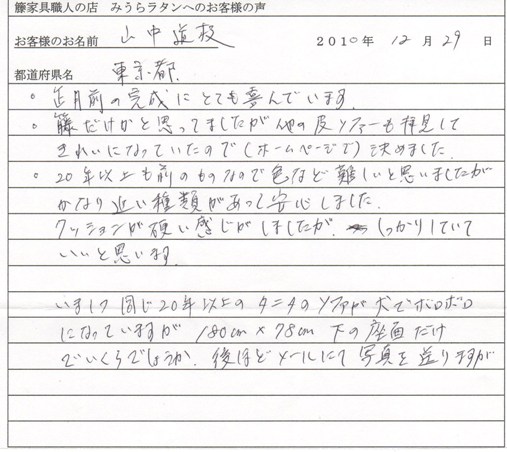 籐家具職人の店 みうらラタンへのお客様の声
お客様のお名前 山中道枝 2010年 12月 29日
都道府県名 東京都
。正月前の完成にとても喜んでいます。
。籐だけかと思ってましたが他の皮ソファーも拝見して
きれいになっていたので(ホームページで)決めました。
。20年以上も前のものなので色など難しいと思いましたが
かなり近い種類があって安心しました。
クッションが硬い感じがしましたが、しっかりしていて
いいと思います。
いま1つ同じ20年以上の タニタのソファが犬でボロボロ
になっていますが 180cm×78cm 下の座面だけ
でいくらでしょうか。後ほどメールにて写真を送りますが